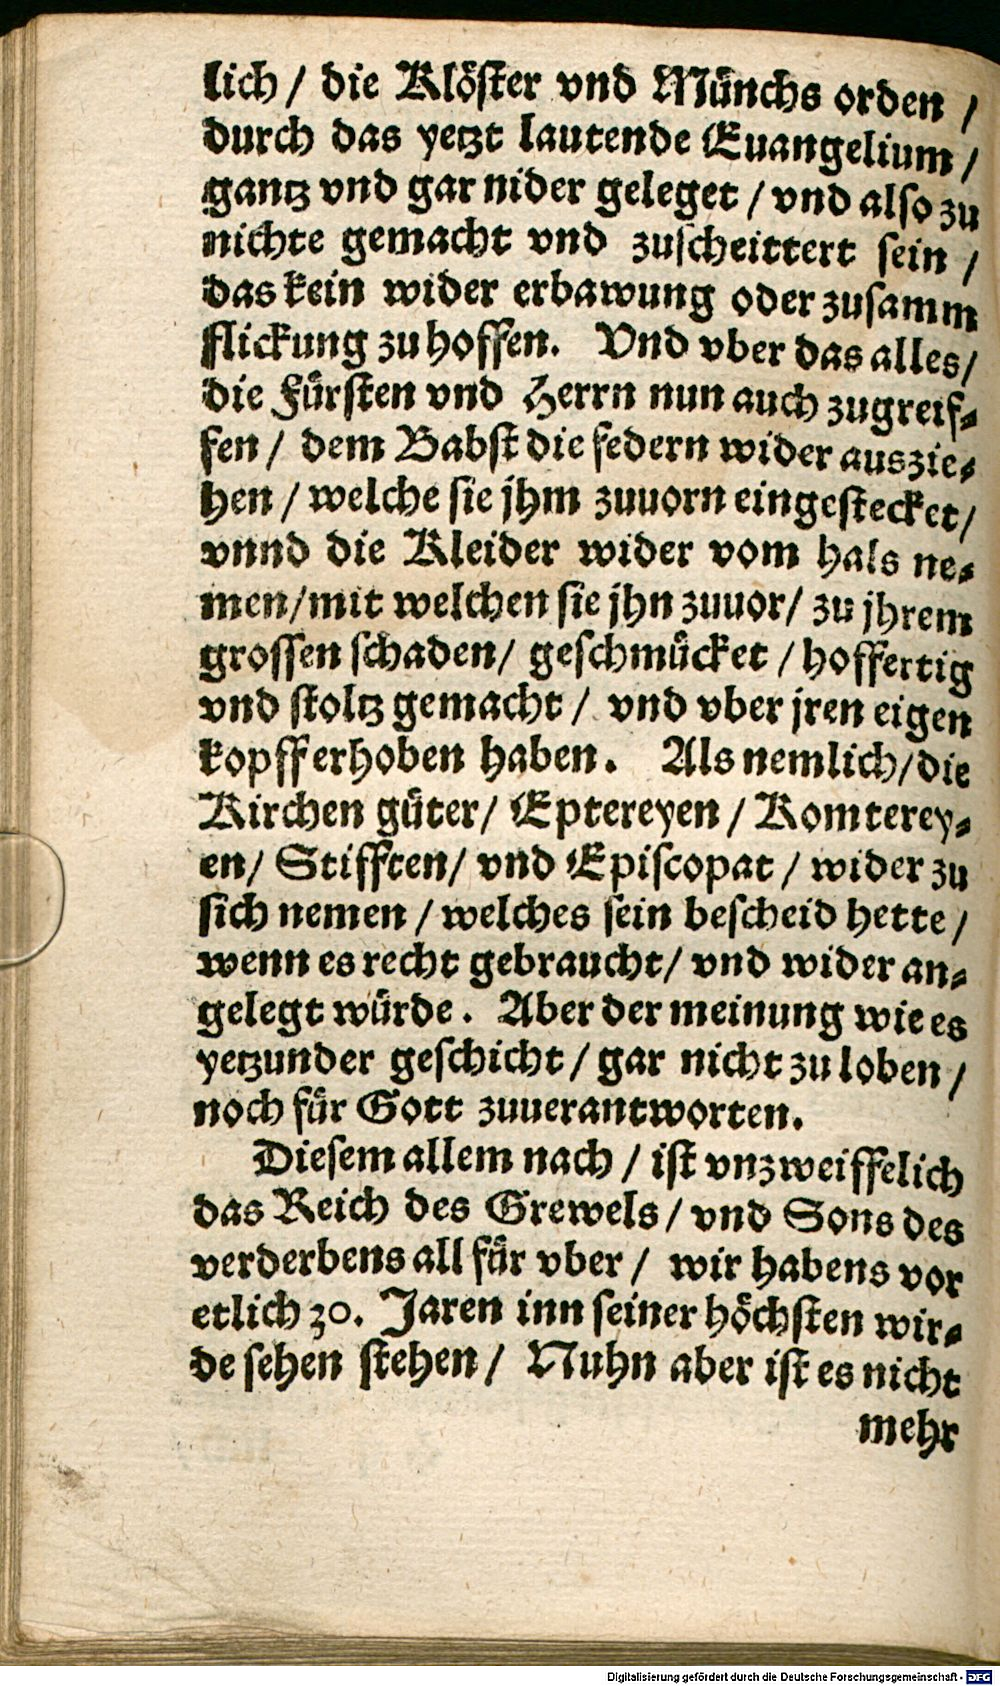 lich / die Klöster vnd Münchs orden /
durch das yetzt lautende Euangelium /
gantz vnd gar nider geleget / vnd also zu
nichte gemacht vnd zuscheittert sein /
das kein wider erbawung oder zusamm
flickung zu hoffen. Vnd vber das alles /
die Fürsten vnd Herrn nun auch zugreif-
fen / dem Babst die federn wider auszie-
hen / welche sie jhm zuuorn eingestecket /
vnnd die Kleider wider vom hals ne-
men / mit welchen sie jhn zuuor / zu jhrem
grossen schaden / geschmücket / hoffertig
vnd stoltz gemacht / vnd vber jren eigen
kopff erhoben haben. Als nemlich / die
Kirchen güter / Eptereyen / Komterey-
en / Stifften / vnd Episcopat / wider zu
sich nemen / welches sein bescheid hette /
wenn es recht gebraucht / vnd wider an-
gelegt würde. Aber der meinung wie es
yetzunder geschicht / gar nicht zu loben /
noch für Gott zuuerantworten.
Diesem allem nach / ist vnzweiffelich
das Reich des Grewels / vnd Sons des
verderbens all für vber / wir habens vor
etlich 30. Jaren inn seiner höchsten wir-
de sehen stehen / Nuhn aber ist es nicht
mehr
Digitalisierung gefördert durch die Deutsche Forschungsgemeinschaft - DFG